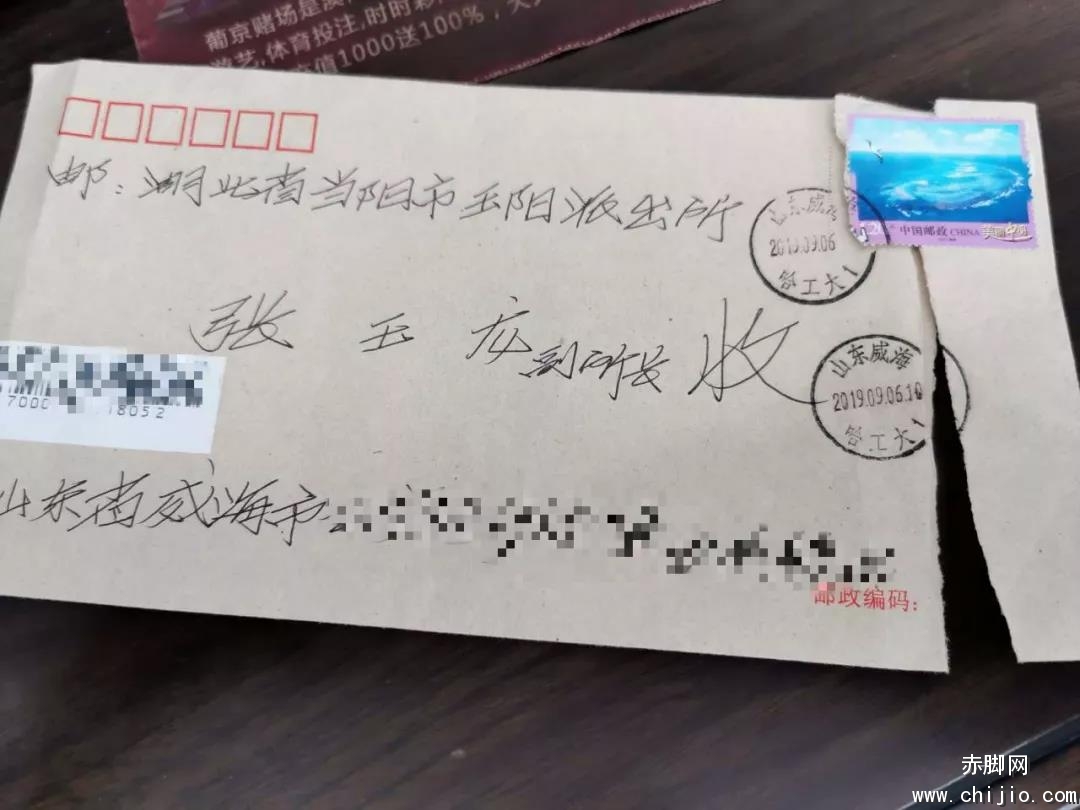 葡京赌场是澳
游艺,体育投注,时时彩
充值1000送100%,天
邮:湖北省当阳市玉阳派出所
张玉龙副所长 收
山东威海
2019.09.06
哈工大1
1.20元 中国邮政 CHINA 美丽中国
山东威海
2019.09.06.10
哈工大1
7000
18052
山东省威海市
邮政编码:
赤脚网
www.chijio.com